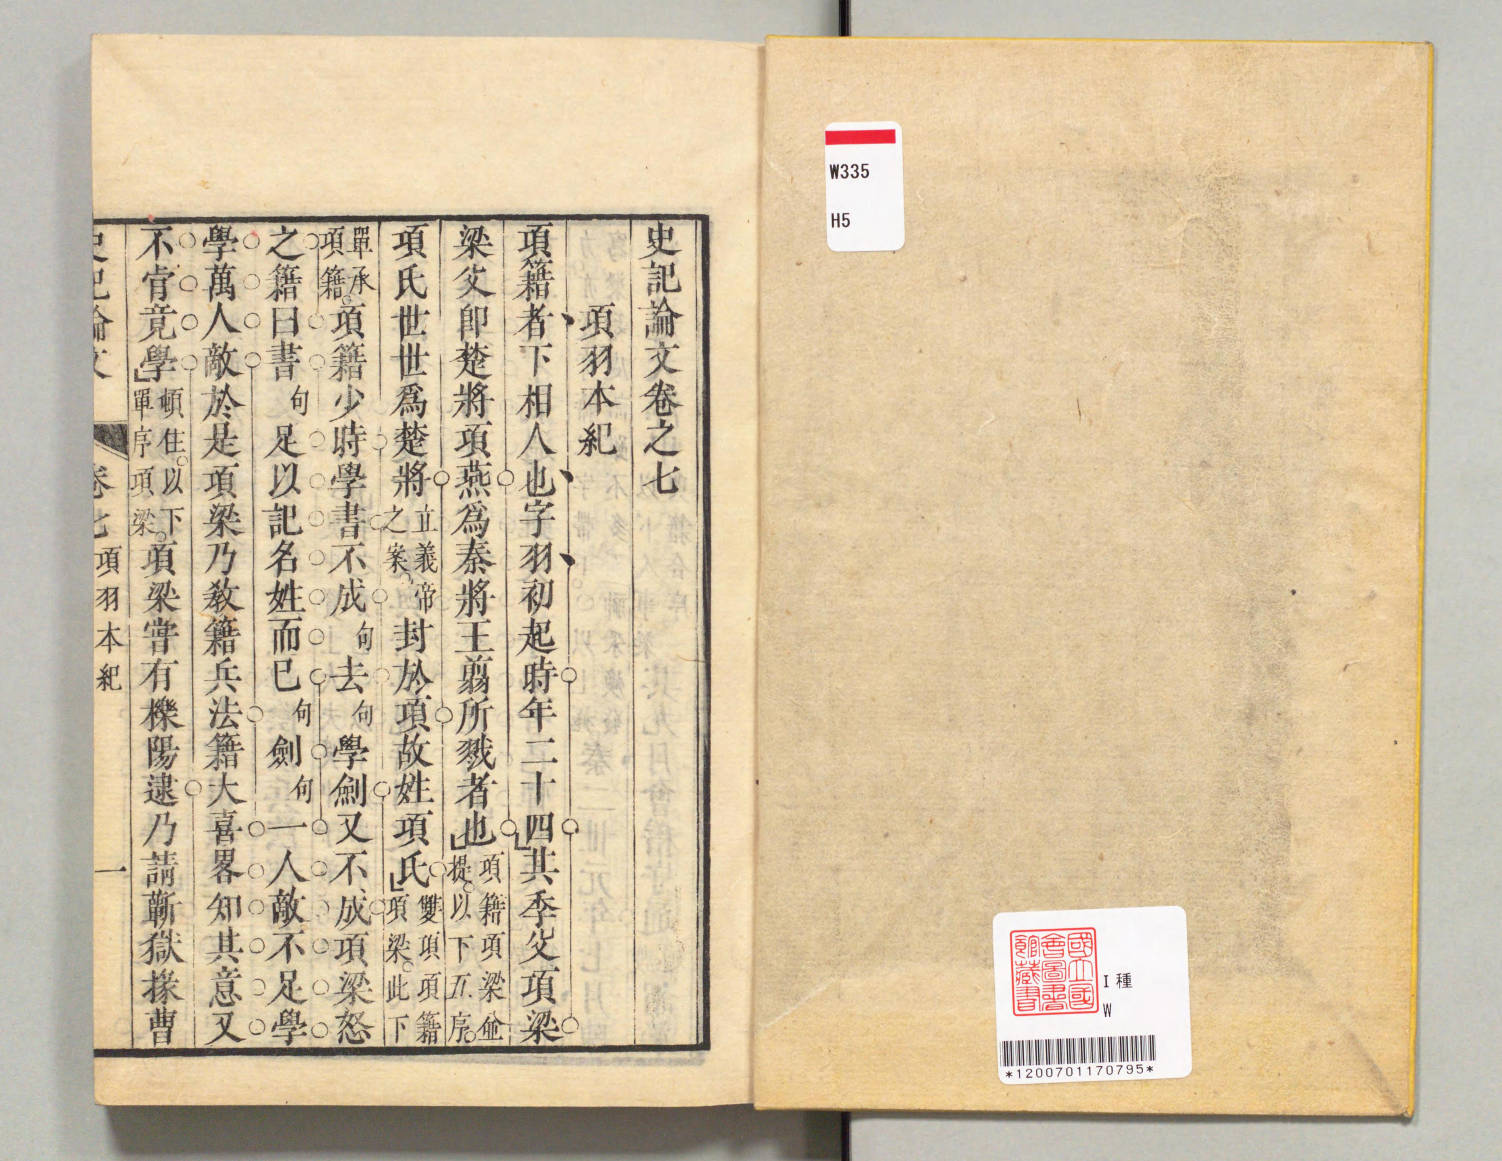 W335
H5
國立國
會圖書
館藏書
I種
W
*1200701170795*
史記論文卷之七
項羽本紀
項籍者下相人也字羽初起時年二十四其季父項梁
梁父卽楚將項燕爲秦將王翦所戮者也項籍項梁並提以下五序
項氏世世爲楚將立義帝之案封於項故姓項氏雙項項籍項梁此下
單承項籍項籍少時學書不成句去句學劍又不成項梁怒
之籍曰書句足以記名姓而已句劍句一人敵不足學
學萬人敵於是項梁乃敎籍兵法籍大喜畧知其意又
不肯竟學頓住以下單序項梁項梁嘗有櫟陽逮乃請蘄獄掾曹
史記論文 卷七 項羽本紀 一